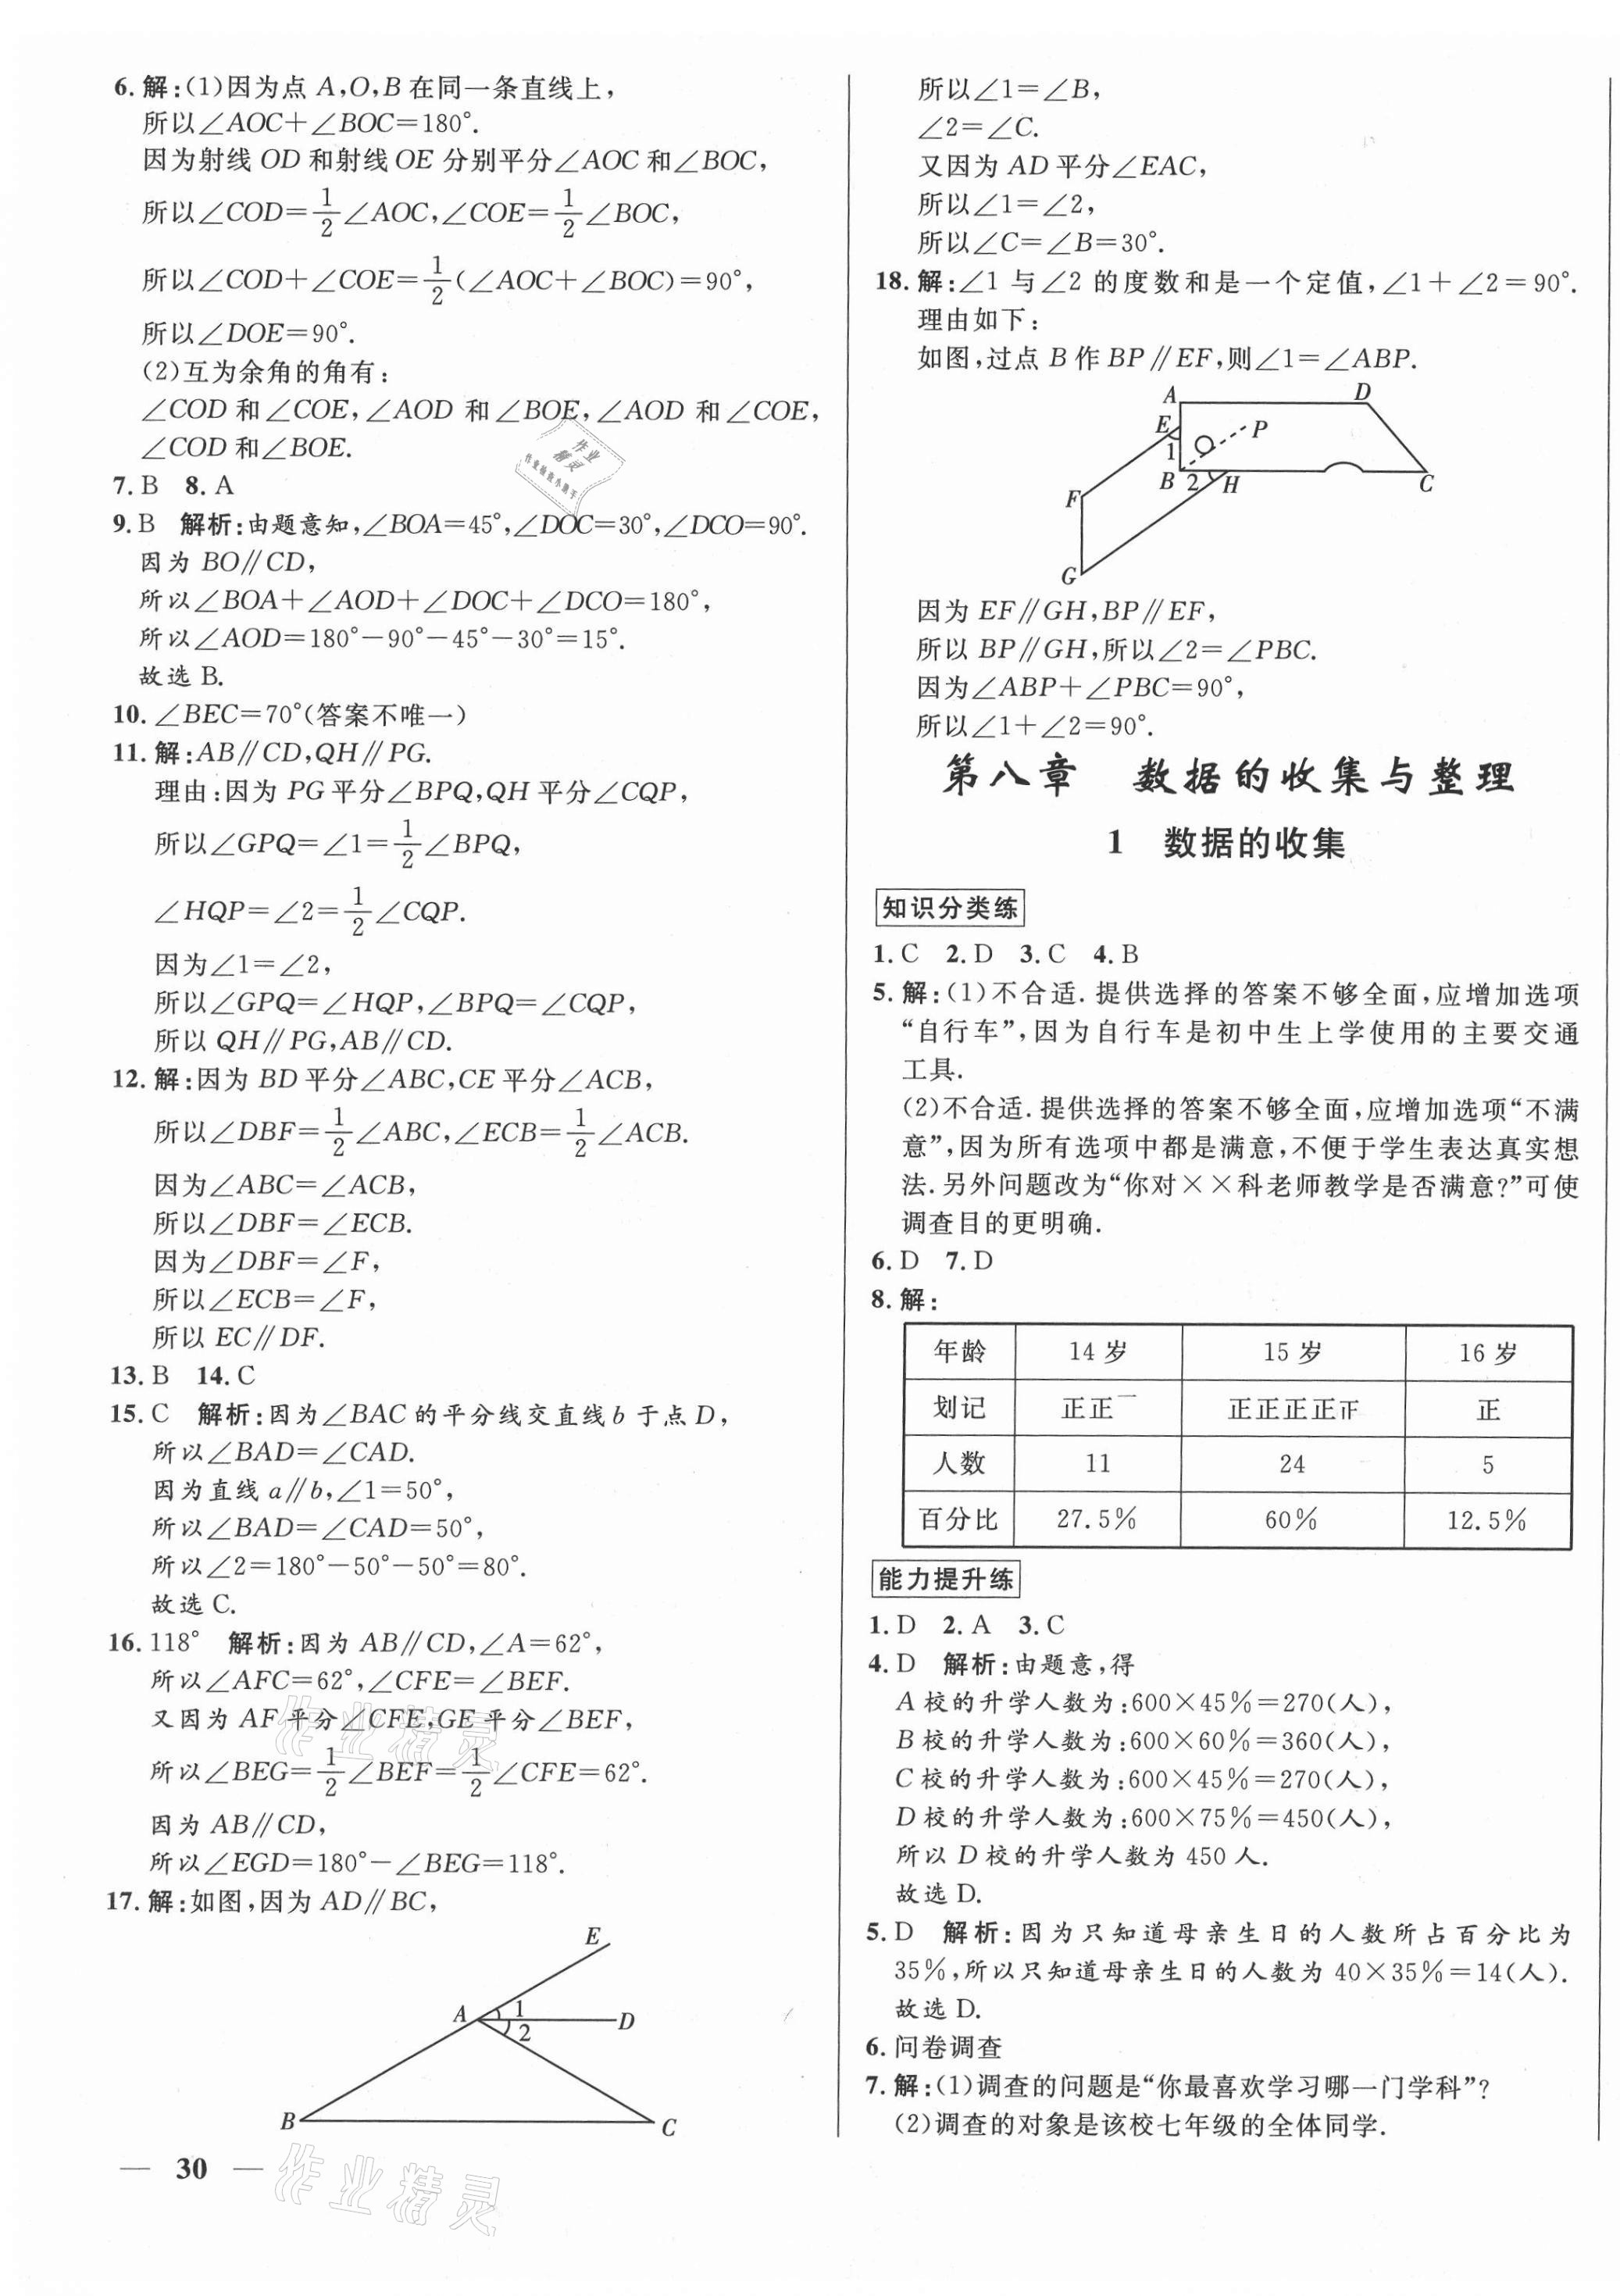 6. 解:(1)因为点 A,O,B 在同一条直线上,
所以∠AOC+∠BOC=180°.
因为射线 OD 和射线 OE 分别平分∠AOC 和∠BOC,
所以∠COD=1/2∠AOC,∠COE=1/2∠BOC,
所以∠COD+∠COE=1/2(∠AOC+∠BOC)=90°,
所以∠DOE=90°.
(2)互为余角的角有:
∠COD 和∠COE,∠AOD 和∠BOE,∠AOD 和∠COE,
∠COD 和∠BOE.
7. B 8. A
9. B 解析:由题意知,∠BOA=45°,∠DOC=30°,∠DCO=90°.
因为 BO∥CD,
所以∠BOA+∠AOD+∠DOC+∠DCO=180°,
所以∠AOD=180°-90°-45°-30°=15°.
故选 B.
10. ∠BEC=70°(答案不唯一)
11. 解:AB∥CD,QH∥PG.
理由:因为 PG 平分∠BPQ,QH 平分∠CQP,
所以∠GPQ=∠1=1/2∠BPQ,
∠HQP=∠2=1/2∠CQP.
因为∠1=∠2,
所以∠GPQ=∠HQP,∠BPQ=∠CQP,
所以 QH∥PG,AB∥CD.
12. 解:因为 BD 平分∠ABC,CE 平分∠ACB,
所以∠DBF=1/2∠ABC,∠ECB=1/2∠ACB.
因为∠ABC=∠ACB,
所以∠DBF=∠ECB.
因为∠DBF=∠F,
所以∠ECB=∠F,
所以 EC∥DF.
13. B 14. C
15. C 解析:因为∠BAC 的平分线交直线 b 于点 D,
所以∠BAD=∠CAD.
因为直线 a∥b,∠1=50°,
所以∠BAD=∠CAD=50°,
所以∠2=180°-50°-50°=80°.
故选 C.
16. 118° 解析:因为 AB∥CD,∠A=62°,
所以∠AFC=62°,∠CFE=∠BEF.
又因为 AF 平分∠CFE,GE 平分∠BEF,
所以∠BEG=1/2∠BEF=1/2∠CFE=62°.
因为 AB∥CD,
所以∠EGD=180°-∠BEG=118°.
17. 解:如图,因为 AD∥BC,
E
A 1 D
2
B C
— 30 —
作业精灵
所以∠1=∠B,
∠2=∠C.
又因为 AD 平分∠EAC,
所以∠1=∠2,
所以∠C=∠B=30°.
18. 解:∠1 与∠2 的度数和是一个定值,∠1+∠2=90°.
理由如下:
如图,过点 B 作 BP∥EF,则∠1=∠ABP.
A D
E P
1
B 2 H C
F
G
因为 EF∥GH,BP∥EF,
所以 BP∥GH,所以∠2=∠PBC.
因为∠ABP+∠PBC=90°,
所以∠1+∠2=90°.
第八章 数据的收集与整理
1 数据的收集
知识分类练
1. C 2. D 3. C 4. B
5. 解:(1)不合适. 提供选择的答案不够全面,应增加选项
“自行车”,因为自行车是初中生上学使用的主要交通
工具.
(2)不合适. 提供选择的答案不够全面,应增加选项“不满
意”,因为所有选项中都是满意,不便于学生表达真实想
法. 另外问题改为“你对××科老师教学是否满意?”可使
调查目的更明确.
6. D 7. D
8. 解:
年龄 14 岁 15 岁 16 岁
划记 正正一 正正正正𤴓 正
人数 11 24 5
百分比 27.5% 60% 12.5%
能力提升练
1. D 2. A 3. C
4. D 解析:由题意,得
A 校的升学人数为:600×45%=270(人),
B 校的升学人数为:600×60%=360(人),
C 校的升学人数为:600×45%=270(人),
D 校的升学人数为:600×75%=450(人),
所以 D 校的升学人数为 450 人.
故选 D.
5. D 解析:因为只知道母亲生日的人数所占百分比为
35%,所以只知道母亲生日的人数为 40×35%=14(人).
故选 D.
6. 问卷调查
7. 解:(1)调查的问题是“你最喜欢学习哪一门学科”?
(2)调查的对象是该校七年级的全体同学.